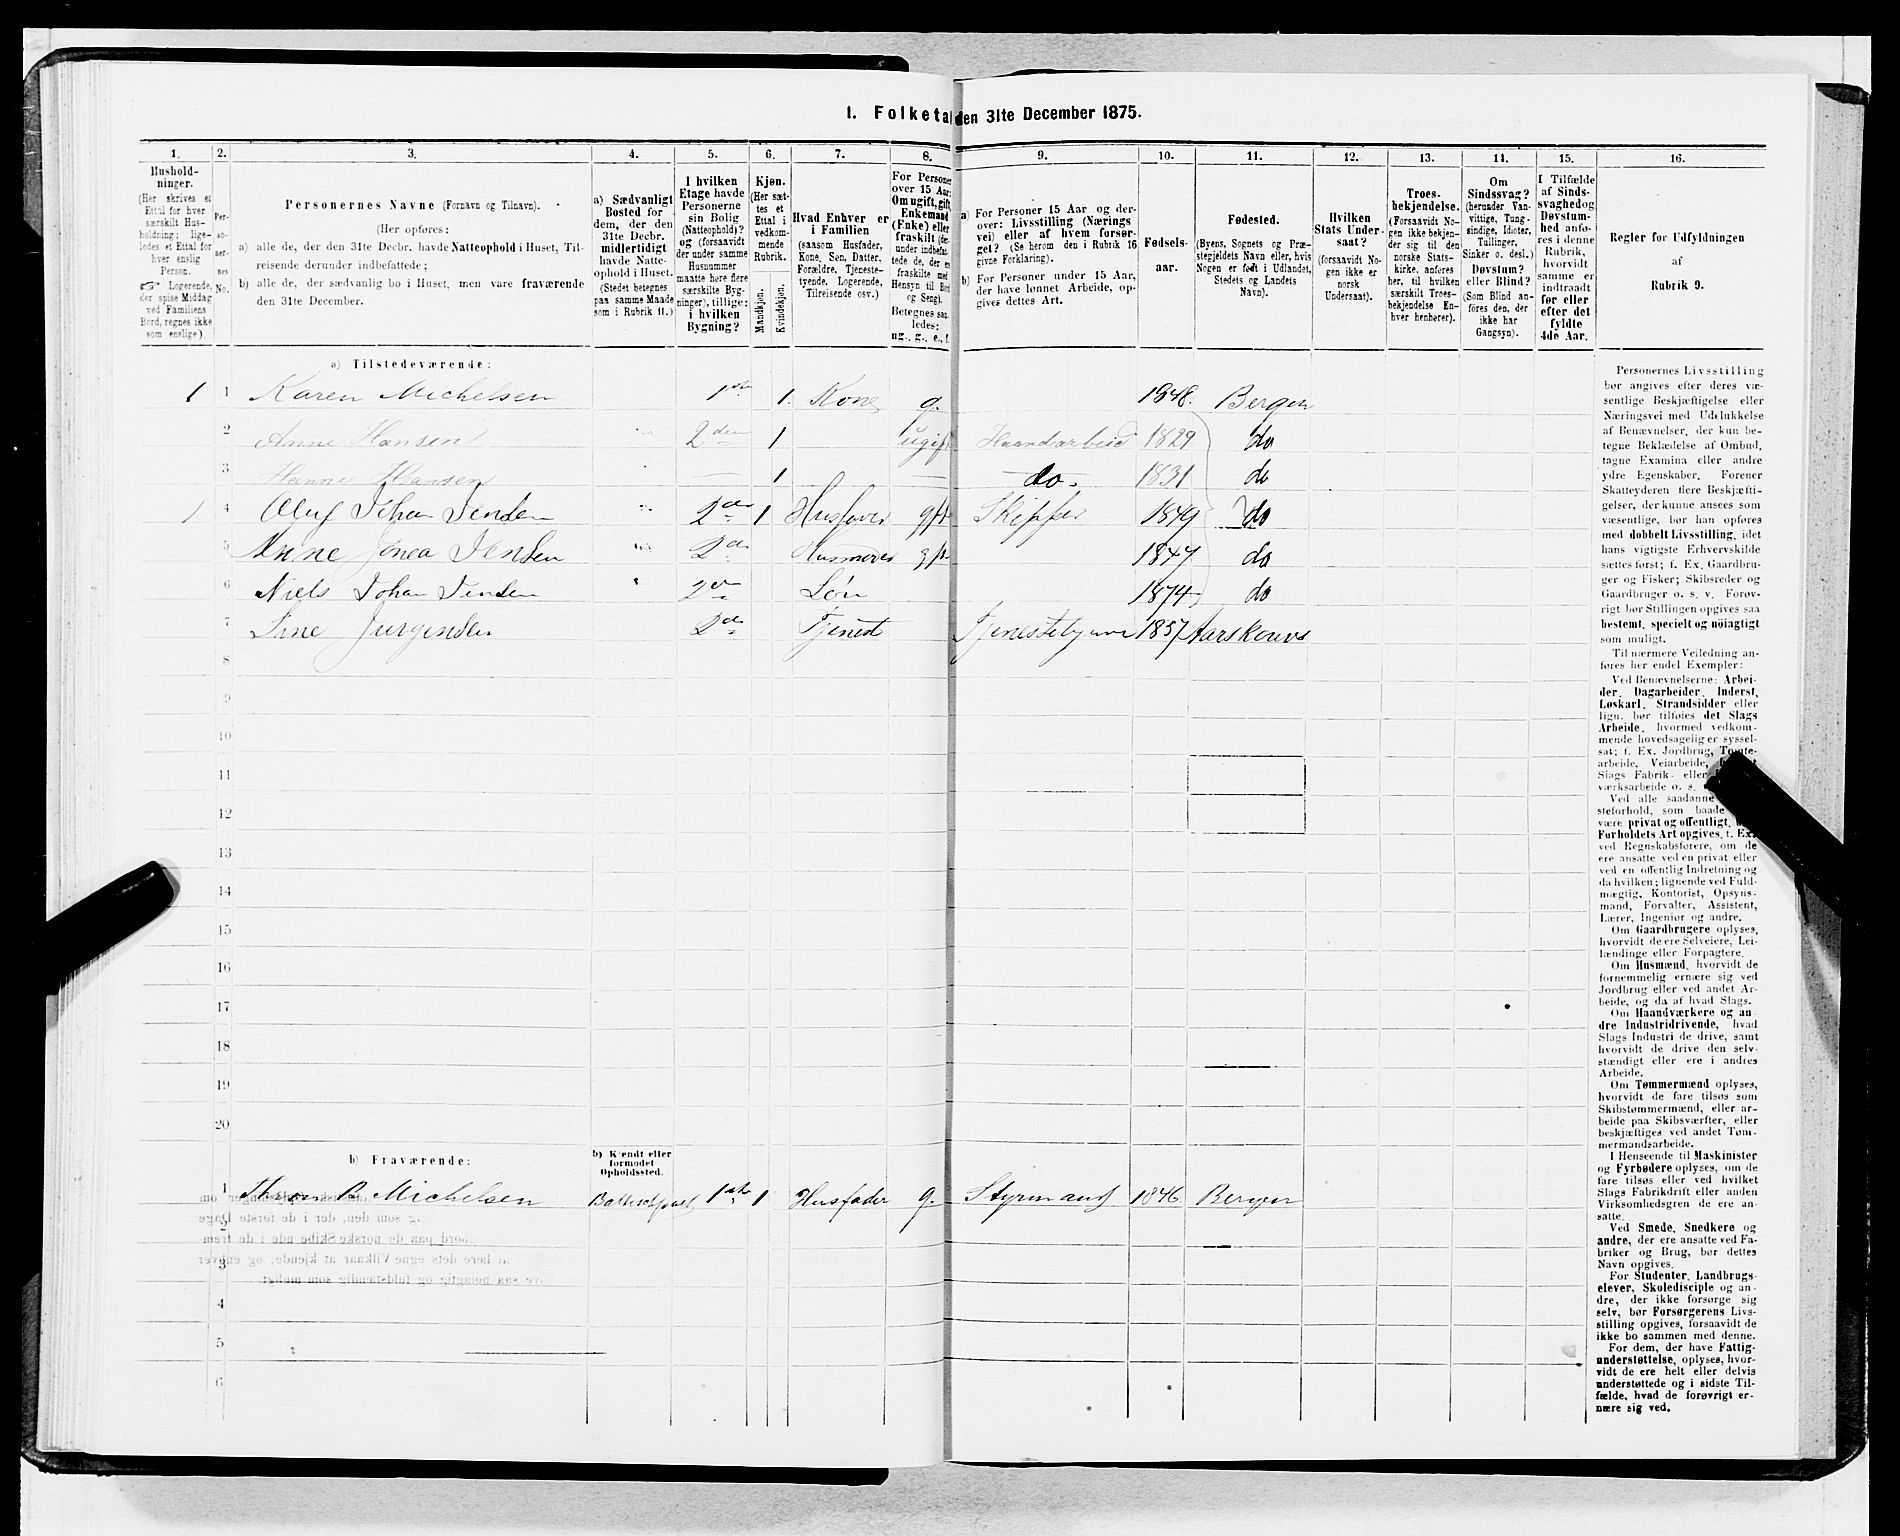 1. Folketal den 31te December 1875.
1. 2. 3. 4. 5. 6. 7. 8. 9. 10. 11. 12. 13. 14. 15. 16.
Hushold-
ninger.
(Her skrives et
Ettal for hver
særskilt Hus-
holdning; lige-
ledes et Ettal for
hver enslig
Person.
☞ Logerende,
der spise Middag
ved Familiens
Bord, regnes ikke
som enslige).
Per-
so-
ner-
nes
No.
Personernes Navne (Fornavn og Tilnavn).
(Her opføres:
a) alle de, der den 31te Decbr. havde Natteophold i Huset, Til-
reisende derunder indbefattede;
b) alle de, der sædvanlig bo i Huset, men vare fraværende
den 31te December.
a) Sædvanligt
Bosted for
dem, der den
31te Decbr.
midlertidigt
havde Natte-
ophold i Huset.
(Stedet betegnes
paa samme Maade
som i Rubrik 11.)
I hvilken
Etage havde
Personerne
sin Bolig
(Natteophold)?
og (forsaavidt
der under samme
Husnummer
maatte høre flere
særskilte Byg-
ninger), tillige:
i hvilken
Bygning?
Kjøn.
(Her sæt-
tes et
Ettal i
vedkom-
mende
Rubrik.
Mandkjøn.
Kvindekjøn.
Hvad Enhver er
i Familien
(saasom Husfader,
Kone, Søn, Datter,
Forældre, Tjeneste-
tyende, Logerende,
Tilreisende osv.)
For Personer
over 15 Aar:
Om ugift, gift,
Enkemand
(Enke) eller
fraskilt (der-
under indbefat-
tede de, der ere
fraskilte med
Hensyn til Bord
og Seng).
Betegnes saa-
ledes:
ug., g., e., f.
a) For Personer 15 Aar og der-
over: Livsstilling (Nærings
vei) eller af hvem forsør-
get? (Se herom den i Rubrik 16
givne Forklaring).
b) For Personer under 15 Aar,
der have lønnet Arbeide, op-
gives dettes Art.
Fødsels-
aar.
Fødested.
(Byens, Sognets og Præ-
stegjeldets Navn eller, hvis
Nogen er født i Udlandet,
Stedets og Landets
Navn).
Hvilken
Stats Under-
saat?
(forsaavidt No-
gen ikke er
norsk
Undersaat).
Troes-
bekjendelse.
(Forsaavidt No-
gen ikke bekjen-
der sig til den
norske Stats-
kirke, anføres
her, til hvilken
særskilt Troes-
bekjendelse En-
hver henhører).
Om
Sindssvag?
(herunder Van-
vittige, Tung-
sindige, Idioter,
Tullinger,
Sinker o. desl.)
Døvstum?
eller Blind?
(Som Blind an-
føres den, der
ikke har
Gangsyn).
I Tilfælde
af Sinds-
svaghed og
Døvstum-
hed anfø-
res i denne
Rubrik,
hvorvidt
samme er
indtraadt
før eller
efter det
fyldte
4de Aar.
Regler før Udfyldningen
af
Rubrik 9.
a) Tilstedeværende:
1 1 Karen Michelsen 1ste 1. Kone g. 1848. Bergen
2 Anne Hansen 2den 1 ugift Haandarbeid 1829 do
3 Hanne Hansen — 1 — do. 1831 do
1 4 Oluf Johan Jensen 2den 1 Husfader gft Skipper 1849 do
5 Anne Jensen 2de Husmoder gft 1847 do
6 Niels Johan Jensen 2den Søn 1874 do
7 Sine Jurgensen 2de Tjenest 1857
8
9
10
11
12
13
14
15
16
17
18
19
20
b) Fraværende:
b) Kjendt eller
formodet
Opholdssted.
1 B. Michelsen 1ste 1 Husfader g. Styrmand 1846. Bergen
2
3
4
5
6
Personernes Livsstilling
bør angives efter deres væ-
sentlige Beskjæftigelse eller
Næringsvei med Udelukkelse
af Benævnelser, der kun be-
tegne Beklædelse af Ombud,
tagne Examina eller andre
ydre Egenskaber. Forener
Skatteyderen flere Beskjæfti-
gelser, der kunne ansees som
væsentlige, bør han opføres
med dobbelt Livsstilling, idet
hans vigtigste Erhvervskilde
sættes først; f. Ex. Gaardbru-
ger og Fisker; Skibsreder og
Gaardbruger o. s. v. Forøv-
rigt bør Stillingen opgives saa
bestemt, specielt og nøiagtigt
som muligt.
Til nærmere Veiledning an-
føres her endel Exempler:
Ved Benævnelserne: Arbei-
der, Dagarbeider, Inderst,
Løskarl, Strandsidder eller
lign. bør tilføies det Slags
Arbeide, hvormed vedkom-
mende hovedsagelig er syssel-
sat; f. Ex. Jordbrug, Tomte-
arbeide, Veiarbeide,
Slags Fabrik- eller
værksarbeide o. s.
Ved alle saadanne
steforhold, som baade
være privat og offentligt,
Forholdets Art opgives, f. Ex.
ved Regnskabsførere, om de
ere ansatte ved en privat eller
ved en offentlig Indretning og
da hvilken; lignende ved Fuld-
mægtig, Kontorist, Opsyns-
mand, Forvalter, Assistent,
Lærer, Ingeniør og andre.
Om Gaardbrugere oplyses,
hvorvidt de ere Selveiere, Lei-
lændinge eller Forpagtere.
Om Husmænd, hvorvidt de
fornemmelig ernære sig ved
Jordbrug eller ved andet Ar-
beide, og da af hvad Slags.
Om Haandværkere og an-
dre Industridrivende, hvad
Slags Industri de drive, samt
hvorvidt de drive den selv-
stændigt eller ere i andres
Arbeide.
Om Tømmermænd oplyses,
hvorvidt de fare tilsøs som
Skibstømmermænd, eller ar-
beide paa Skibsværfter, eller
beskjæftiges ved andet Tøm-
mermandsarbeide.
I Henseende til Maskinister
og Fyrbødere oplyses, om de
fare tilsøs eller ved hvilket
Slags Fabrikdrift eller anden
Virksomhedsgren de ere an-
satte.
Ved Smede, Snedkere og
andre, der ere ansatte ved Fa-
briker og Brug, bør dettes
Navn opgives.
For Studenter, Landbrugs-
elever, Skoledisciple og an-
dre, der ikke forsørge sig
selv, bør Forsørgerens Livs-
stilling opgives, forsaavidt de
ikke bo sammen med denne.
For dem, der have Fattig-
understøttelse, oplyses, hvor-
vidt de ere helt eller delvis
understøttede og i sidste Til-
fælde, hvad de forøvrigt er-
nære sig ved.